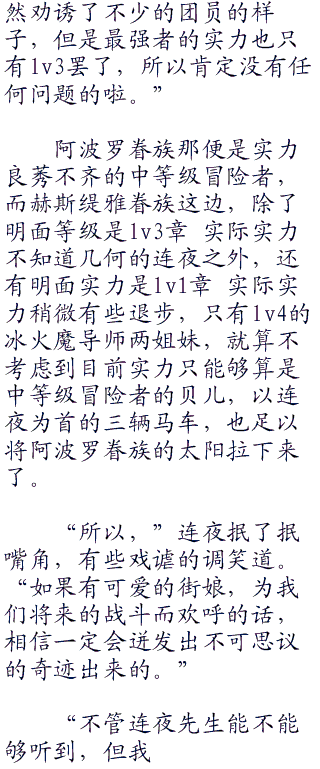 然劝诱了不少的团员的样
子，但是最强者的实力也只
有lv3罢了，所以肯定没有任
何问题的啦。”
阿波罗眷族那便是实力
良莠不齐的中等级冒险者，
而赫斯缇雅眷族这边，除了
明面等级是lv3章 实际实力
不知道几何的连夜之外，还
有明面实力是lv1章 实际实
力稍微有些退步，只有lv4的
冰火魔导师两姐妹，就算不
考虑到目前实力只能够算是
中等级冒险者的贝儿，以连
夜为首的三辆马车，也足以
将阿波罗眷族的太阳拉下来
了。
“所以，”连夜抿了抿
嘴角，有些戏谑的调笑道。
“如果有可爱的街娘，为我
们将来的战斗而欢呼的话，
相信一定会迸发出不可思议
的奇迹出来的。”
“不管连夜先生能不能
够听到，但我